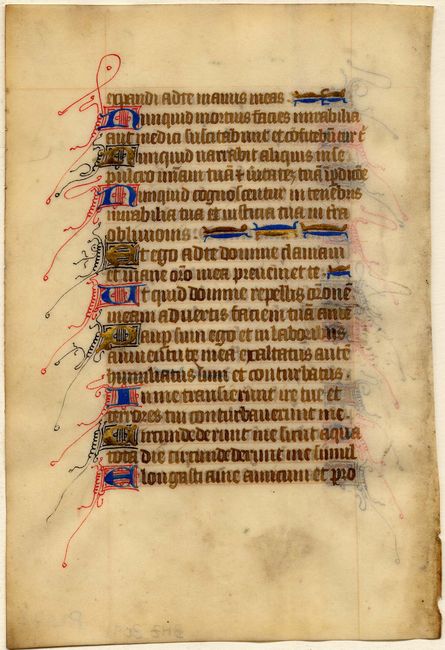 expandi ad te manus meas
Nunquid mortuis facies mirabilia
aut medici suscitabunt et cōfitebūtur t̄
Nunquid narrabit aliquis in se
pulcro mīam tuā ⁊ ūitatez tuā ī pdictōe
Nunquid cognoscentur in tenebris
mirabilia tua et iusticia tua in t̄ra
oblivionis
Et ego ad te domine clamavi
et mane orō mea preveniet te
Ut quid domine repellis orōnē
meam advertis faciem tuā a me
Paup sum ego et in laboribus
a iuventute mea exaltatus autē
humiliatus sum et conturbatus
In me transierunt ire tue et
terrores tui conturbaverunt me
Circundederunt me sicut aqua
tota die circundederunt me simul
Elongasti a me amicum et pro